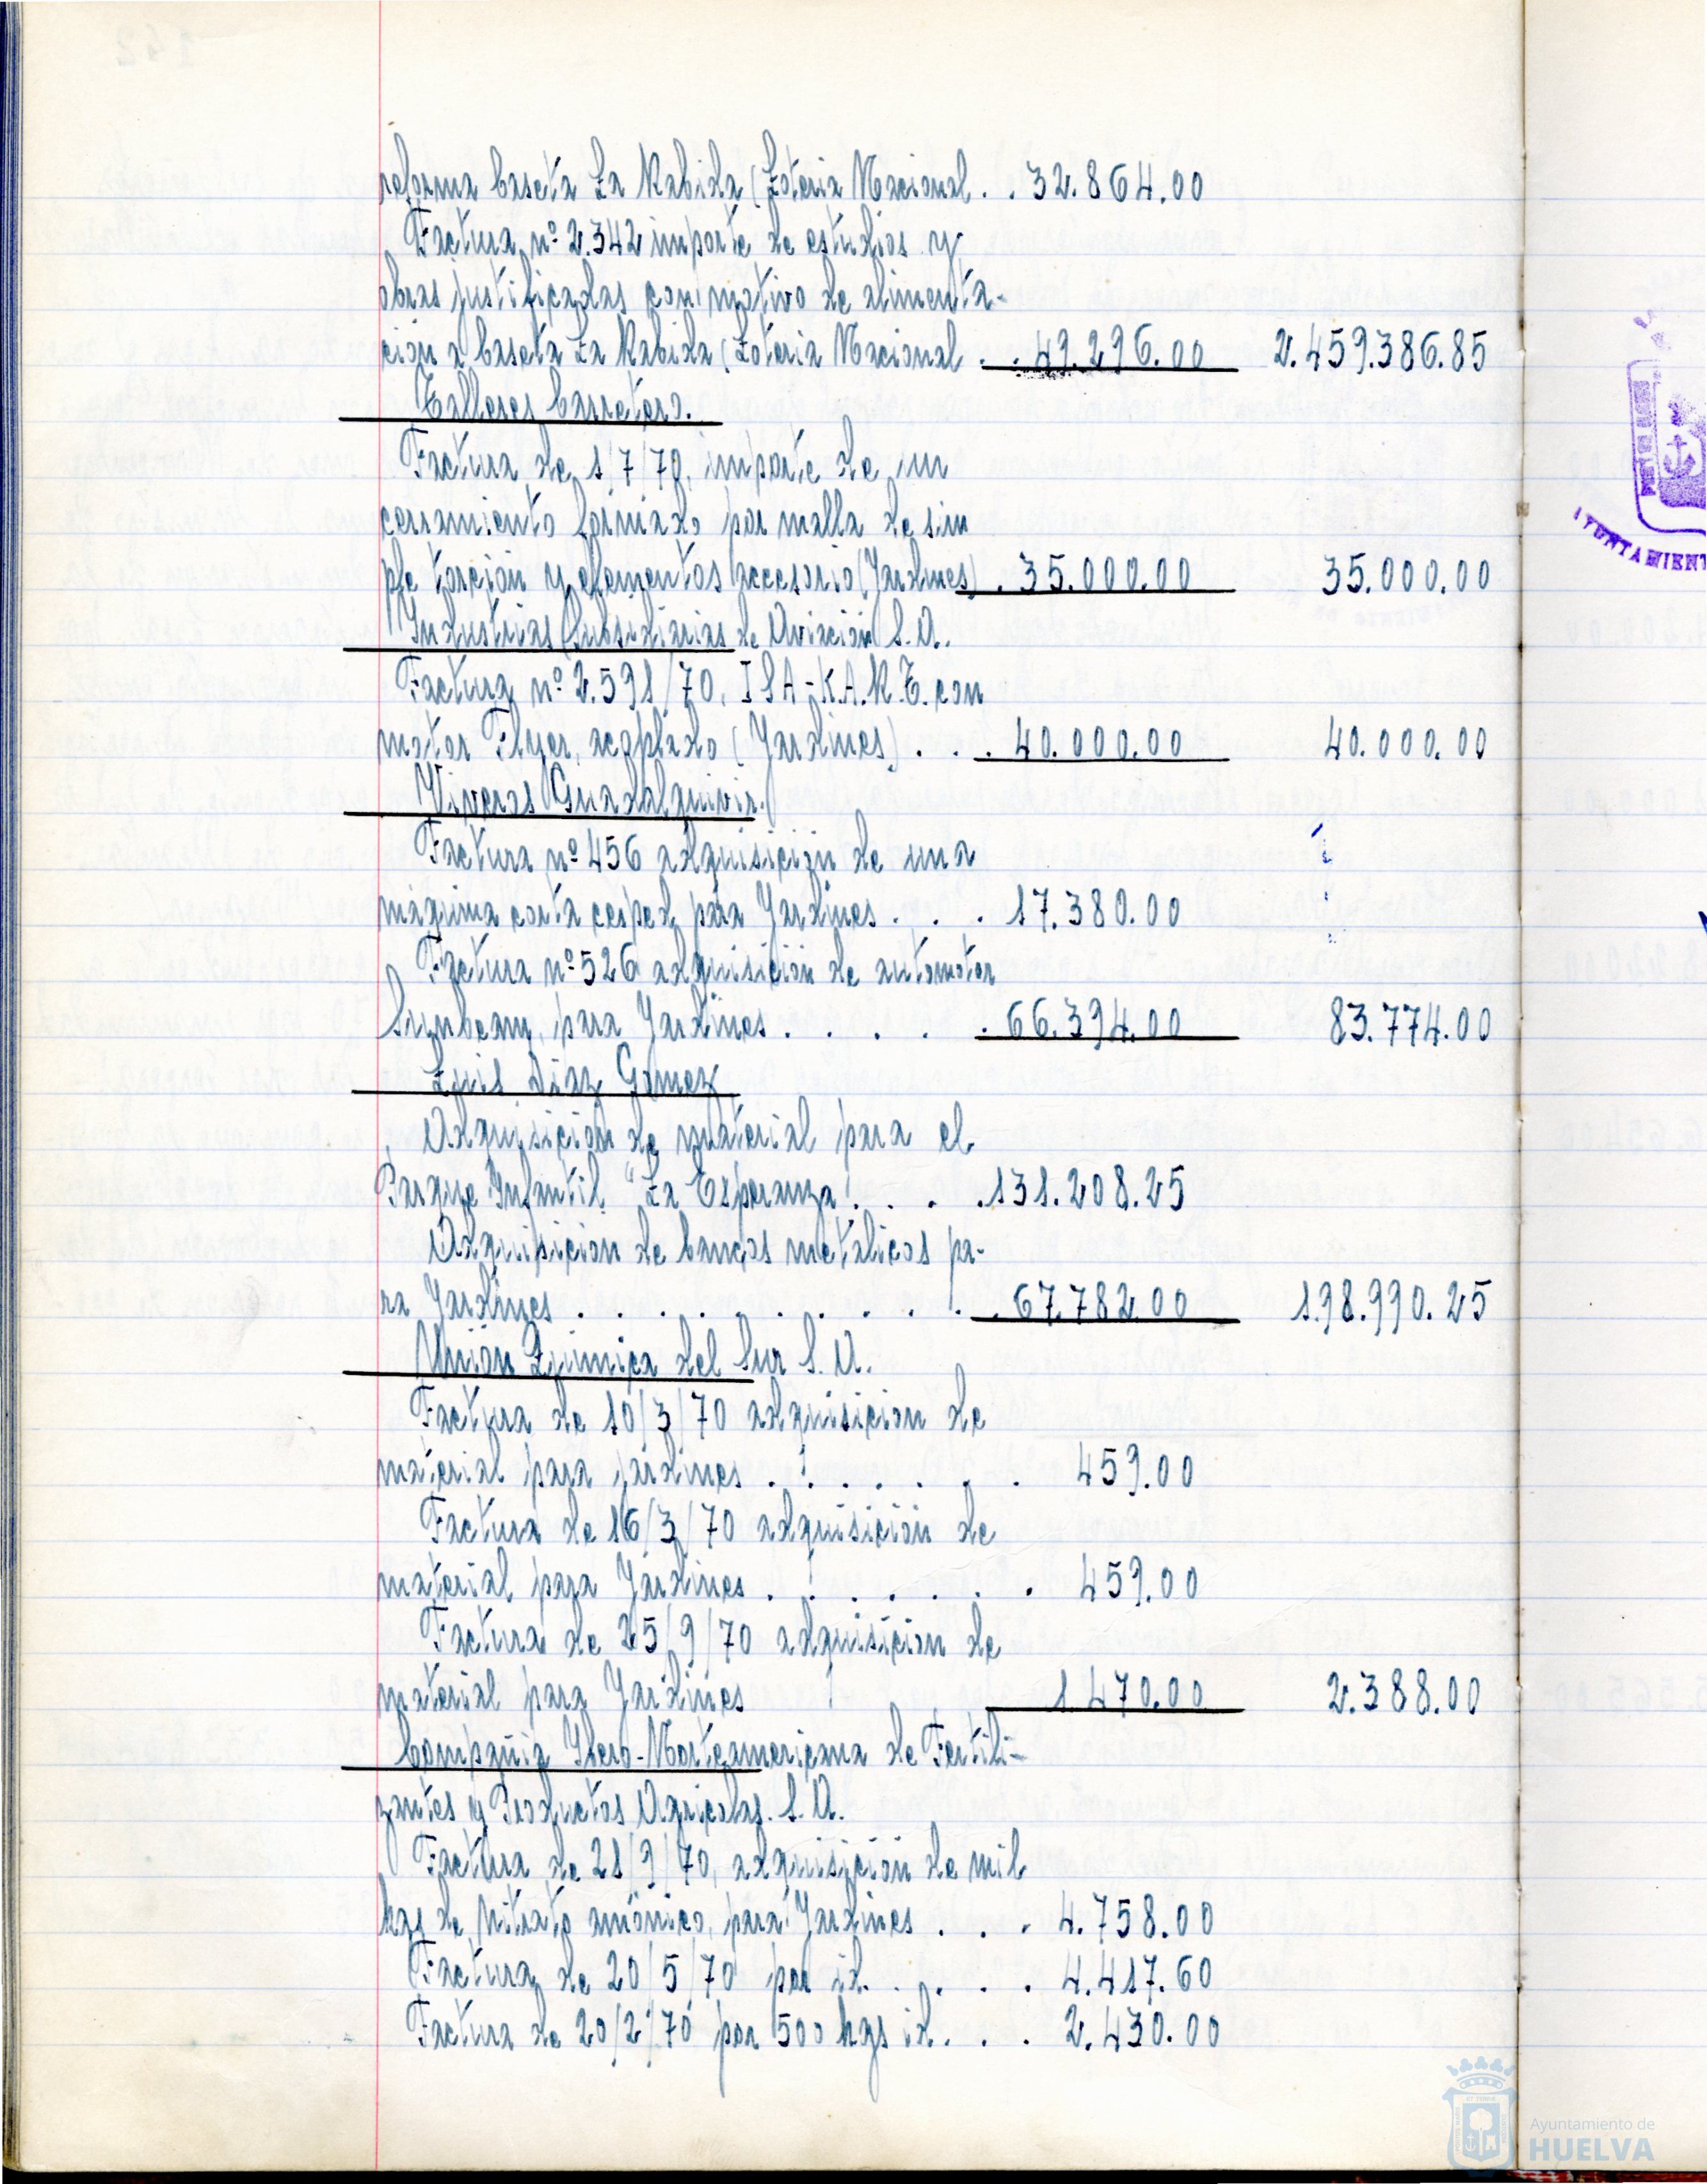 reforma Caseta La Rabida (Loteria Nacional . . 32.864.00
Factura nº 2.342 importe de estudios y
obras justificadas con motivo de alimenta-
ción a Caseta La Rabida (Loteria Nacional . . 49.296.00 2.459.386.85
Talleres Carretero.
Factura de 1/7/70, importe de un
cerramiento formado por malla de sim
ple torción y elementos accesorio (Jardines) . 35.000.00 35.000.00
Industrias Subsidiarias de Aviación S.A.
Factura nº 2.591/70, ISA-K.A.R.T. con
motor Flyer, acoplado (Jardines) . . . 40.000.00 40.000.00
Viveros Guadalquivir.
Factura nº 456 adquisición de una
máquina corta cesped para Jardines . . . 17.380.00
Factura nº 526 adquisición de automotor
Sumbeam, para Jardines . . . . . 66.394.00 83.774.00
Luis Diaz Gomez
Adquisición de material para el
Parque Infantil "La Esperanza" . . . . 131.208.25
Adquisicion de bancos metalicos pa-
ra Jardines . . . . . . . . . . 67.782.00 198.990.25
Unión Quimica del Sur S.A.
Factura de 10/3/70 adquisicion de
material para jardines . . . . . . 459.00
Factura de 16/3/70 adquisición de
material para Jardines . . . . . . 459.00
Factura de 25/9/70 adquisicion de
material para Jardines 1.470.00 2.388.00
Compañia Ibero-Norteamericana de Fertili-
zantes y Productos Agricolas. S.A.
Factura de 21/9/70, adquisición de mil
kgs de nitrato amónico, para Jardines . . . 4.758.00
Factura de 20/5/70 por id. . . . . 4.417.60
Factura de 20/2/70 por 500 kgs id. . . . 2.430.00
Ayuntamiento de
HUELVA